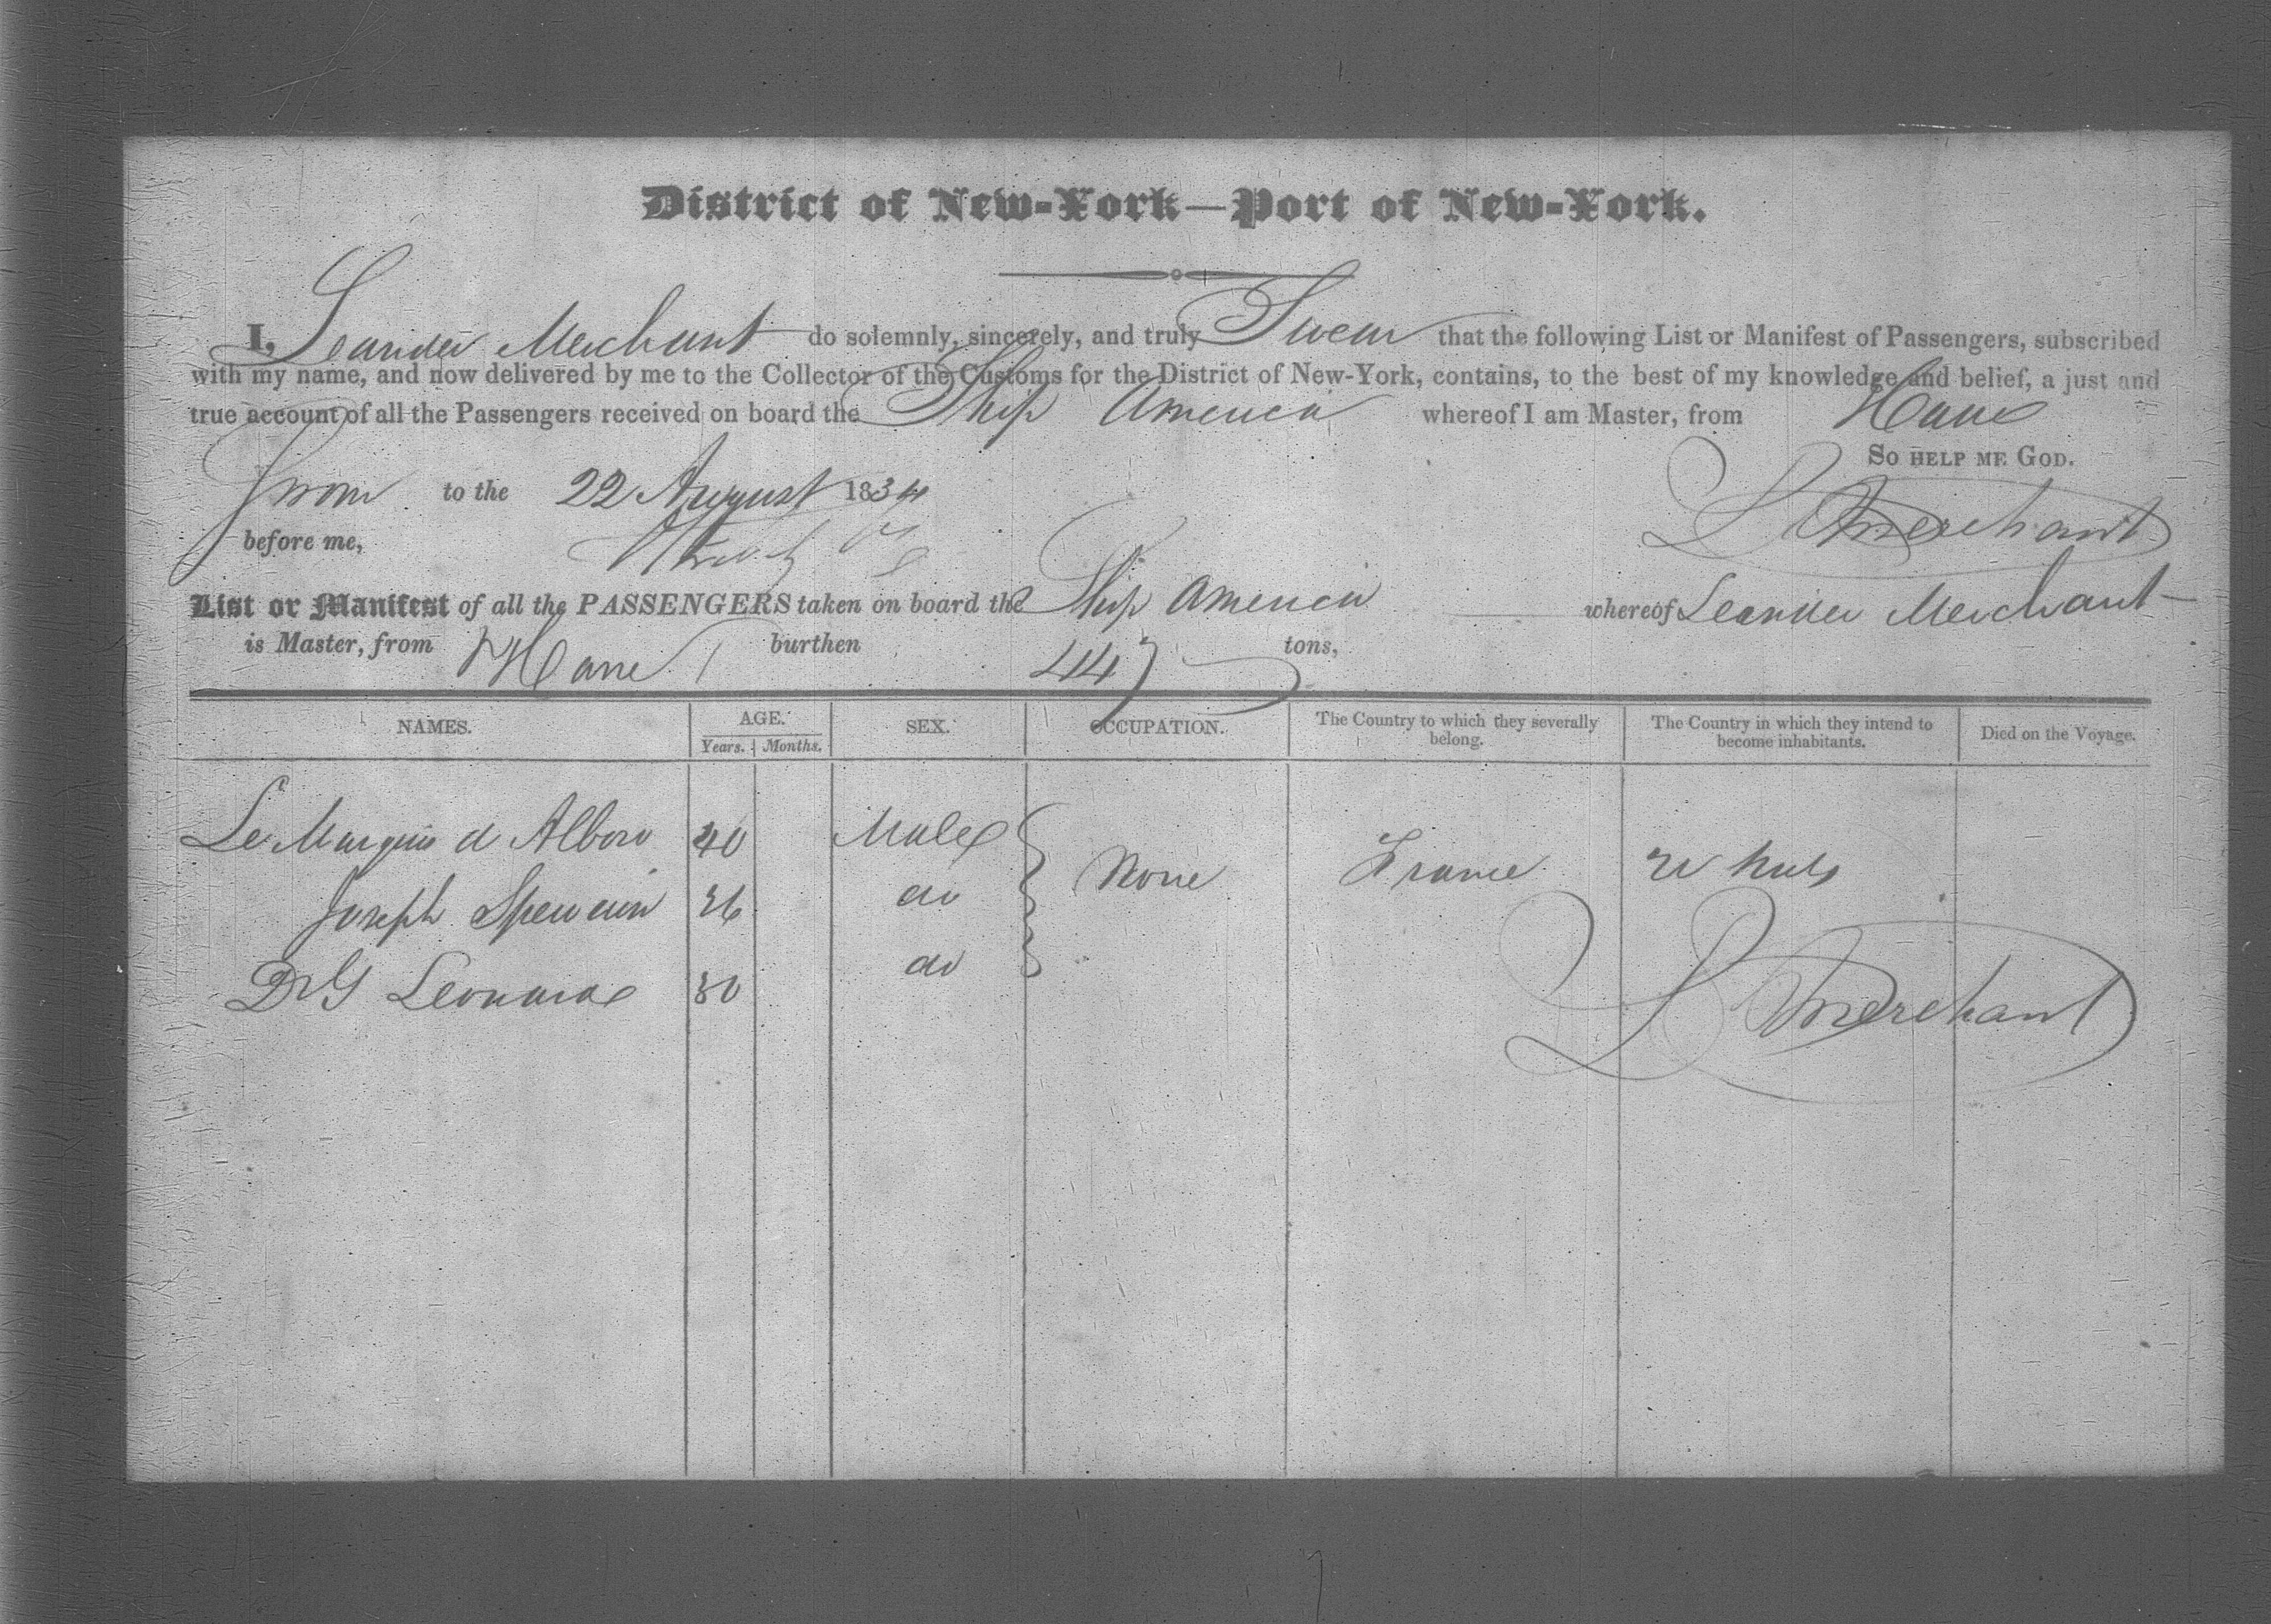 District of New-York—Port of New-York.
I, Leander Merchant do solemnly, sincerely, and truly Swear that the following List or Manifest of Passengers, subscribed
with my name, and now delivered by me to the Collector of the Customs for the District of New-York, contains, to the best of my knowledge and belief, a just and
true account of all the Passengers received on board the Ship America whereof I am Master, from Havre
So HELP ME GOD.
Sworn to the 22 August 1834
L Merchant
before me,
List or Manifest of all the PASSENGERS taken on board the Ship America whereof Leander Merchant
is Master, from Havre burthen tons,
NAMES. AGE. SEX. OCCUPATION. The Country to which they severally belong. The Country in which they intend to become inhabitants. Died on the Voyage.
Years. Months.
Le Marquis d 40 Male
None France
Joseph 26 do
Dr G Leonard 30 do
L Merchant